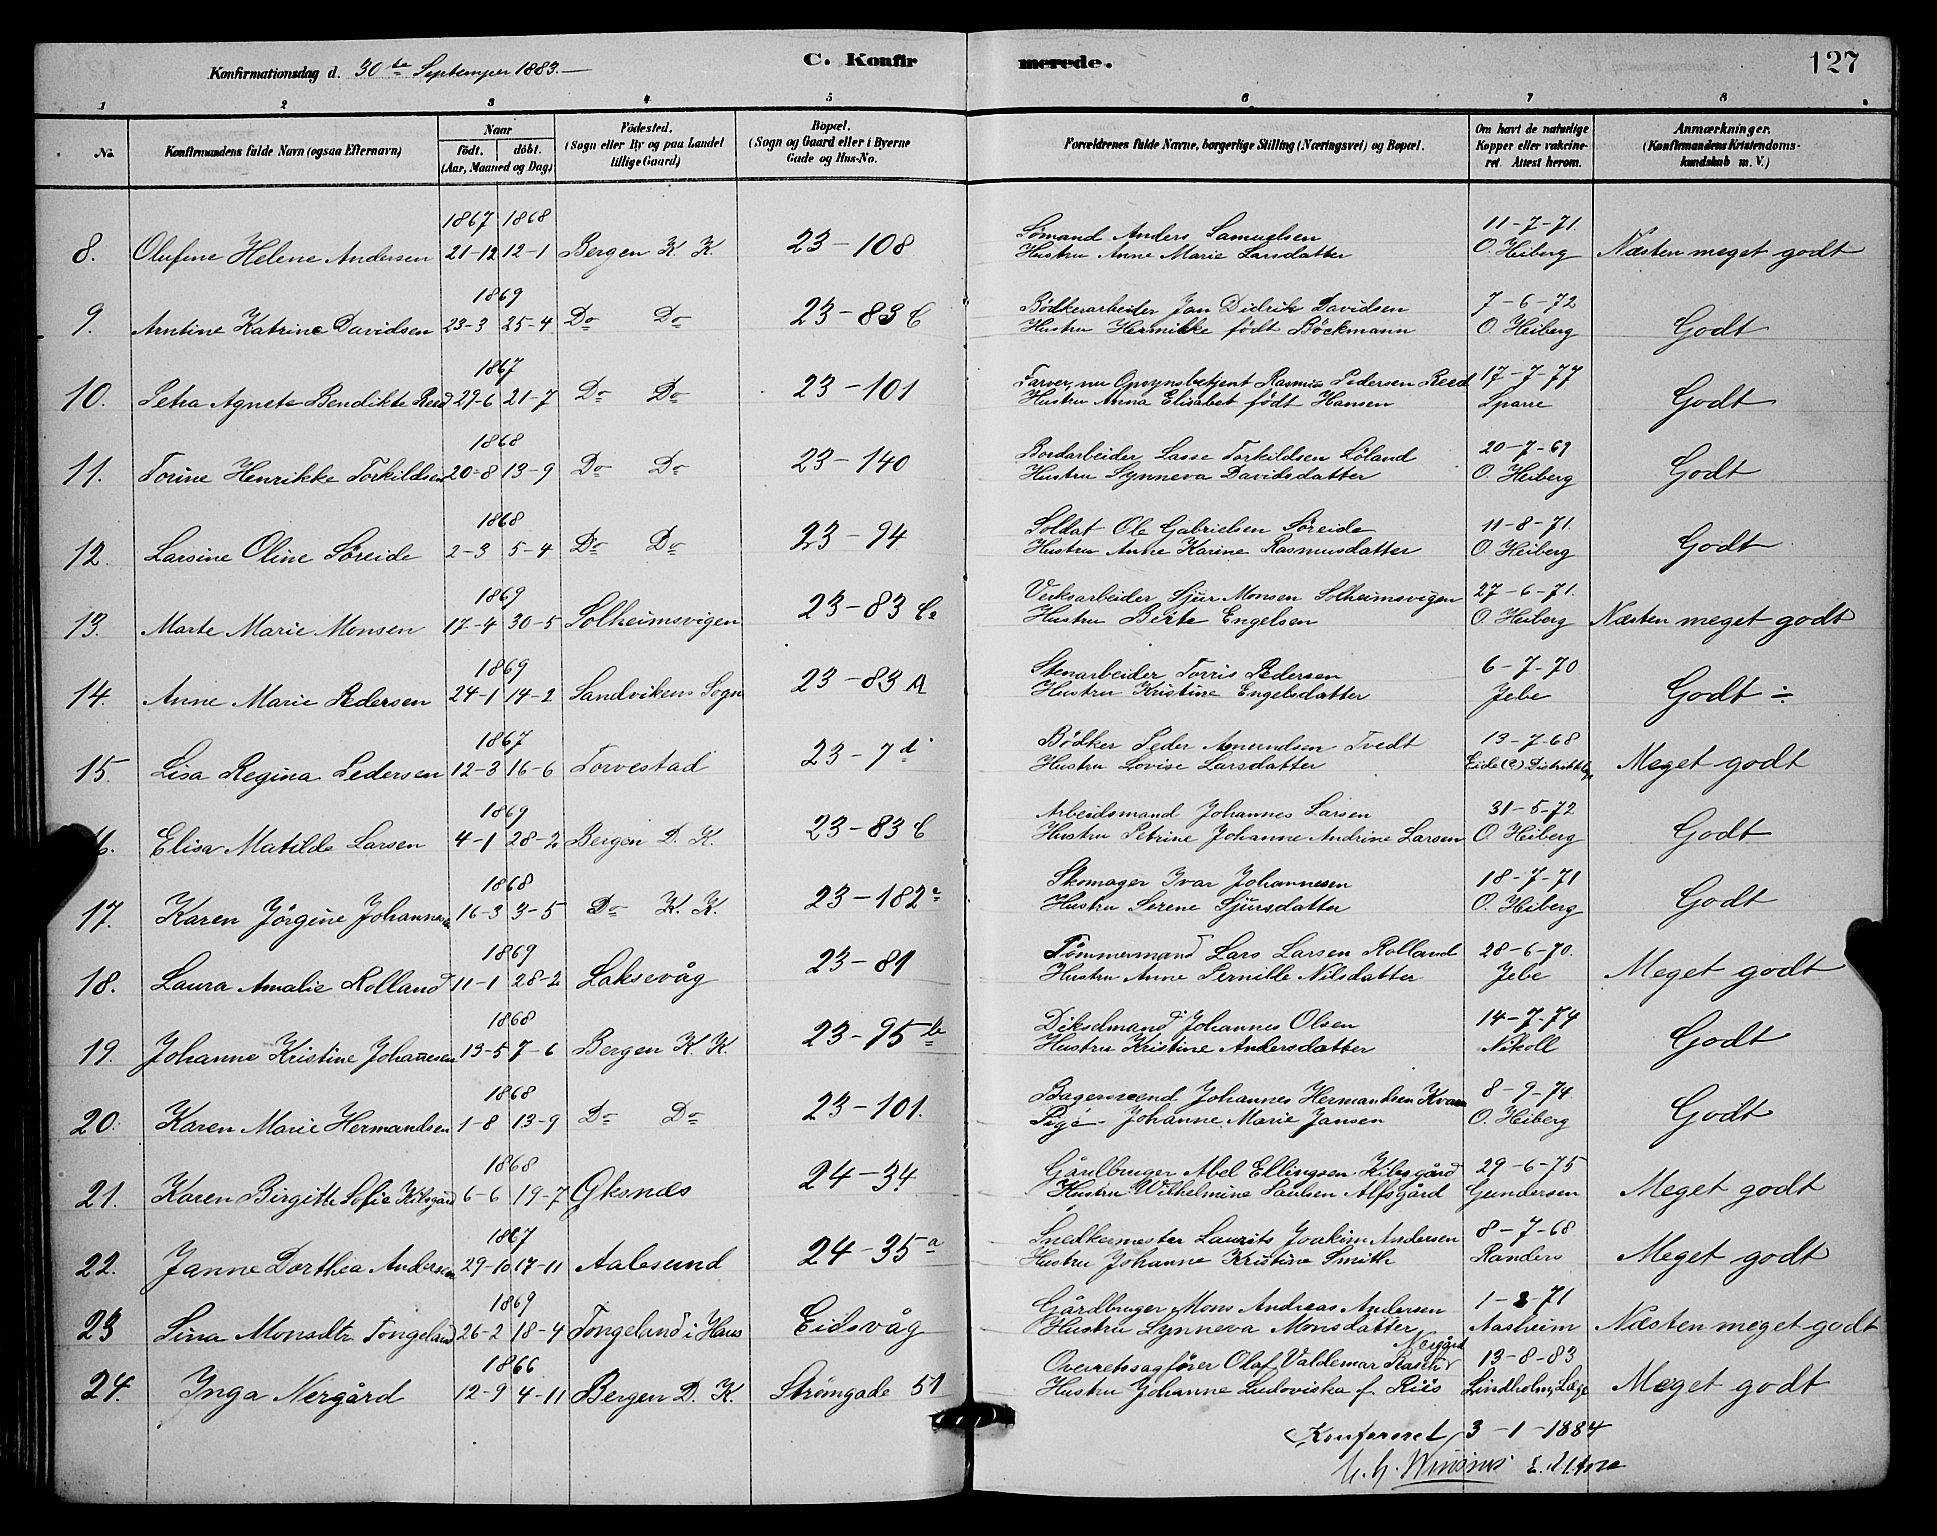 Konfirmationsdag d. 30te September 1883.
C. Konfirmerede.
127
1 2 3 4 5 6 7 8
No. Konfirmandens fulde Navn (ogsaa Efternavn)
Naar født. døbt. (Aar, Maaned og Dag)
Födested. (Sogn eller By og paa Landet tillige Gaard)
Bopæl. (Sogn og Gaard eller i Byerne Gade og Hus-No.
Forældrenes fulde Navne, borgerlige Stilling (Næringsvei) og Bopæl.
Om havt de naturlige Kopper eller vakcineret Attest herom.
Anmærkninger. (Konfirmandens Kristendomskundskab m. V.)
1867 1868
8. Olufine Helene Andersen 21-12 12-1 Bergen K. K. 23-108 Sömand Anders Samuelsen 11-7-71
Hustru Anne Marie Larsdatter O. Heiberg Næsten meget godt
1869
9. Arntine Katrine Davidsen 23-3 25-4 Do Do 23-83 C Bödkerarbeider Jan Didrik Davidsen 7-6-72
Hustru Hermikke födt Böckmann O. Heiberg Godt
1867
10. Petra Agnete Bendikte Reed 29-6 21-7 Do Do 23-101 Farver, nu Opsynsbetjent Rasmus Pedersen Reed 17-7-77
Hustru Anna Elisabet födt Hansen Sparre Godt
1868
11. Torine Henrikke Torkildsen 20-8 13-9 Do Do 23-140 Bordarbeider Lasse Torkildsen Löland 20-7-69
Hustru Synneva Davidsdatter O. Heiberg Godt
1868
12. Larsine Oline Söreide 2-3 5-4 Do Do 23-94 Soldat Ole Gabrielsen Söreide 11-8-71.
Hustru Anne Karine Rasmusdatter O. Heiberg Godt
1869
13. Marte Marie Monsen 17-4 30-5 Solheimsvigen 23-83 C. Verksarbeider Sjur Monsen Solheimsvigen 27-6-71.
Hustru Berte Engelsen O. Heiberg Næsten meget godt
1869
14. Anne Marie Pedersen 24-1 14-2 Sandvikens Sogn 23-83 A Stenarbeider Torris Pedersen 6-7-70
Hustru Kristine Engelsdatter Jebe Godt ÷
1867
15. Lisa Regina Pedersen 12-3 16-6 Torvestad 23-7 d Bödker Peder Amundsen Tvedt 13-7-68
Hustru Lovise Larsdatter Eide (C) Meget godt
1869
6. Elisa Matilde Larsen 4-1 28-2 Bergen D. K. 23-83 C Arbeidsmand Johannes Larsen 31-5-72
Hustru Petrine Johanne Andrine Larsen O. Heiberg Godt
1868
17. Karen Jörgine Johannesen 16-3 3-5 Do K. K. 23-182 c Skomager Ivar Johannesen 18-7-71
Hustru Serene Sjursdatter O. Heiberg Godt
1869
18. Laura Amalie Rolland 11-1 28-2 Laksevåg 23-81 Tömmermand Lars Larsen Rolland 28-6-70.
Hustru Anne Pernille Nilsdatter Jebe Meget godt
1868
19. Johanne Kristine Johannesen 13-5 7-6 Bergen K. K. 23-95 b Dikselmand Johannes Olsen 14-7-74
Hustru Kristine Andersdatter Nikoll Godt
1868
20. Karen Marie Hermandsen 1-8 13-9 Do Do 23-101. Bagersvend Johannes Hermandsen Kvam 8-9-74
Pige Johanne Marie Jansen O. Heiberg Godt
1868
21. Karen Birgitte Sofie Kilsgård 6-6 19-7 Öksnæs 24-34 Gårdbruger Abel Ellingsen Kilsgård 29-6-75
Hustru Wilhelmine Paulsen Alfsgård Gundersen Meget godt
1867
22. Janne Dorthea Andersen 29-10 17-11 Aalesund 24-35 a Snedkermester Laurits Joakim Andersen 8-7-68
Hustru Johanne Kristine Smith Randers Meget godt
1869
23 Sina Monsdtr. Tongeland 26-2 18-4 Tongeland i Haus Eidsvåg Gårdbruger Mons Andreas Andersen 1-8-71
Hustru Synneva Monsdatter Aasheim Næsten meget godt
1866
24. Inga Nergård 12-9 4-11 Bergen D. K. Strömgade 51 Overretssagförer Olaf Valdemar Nergård 13-8-83
Hustru Johanne Ludoviska f. Riis Lindholm, Læge Meget godt
Konfereret 3-1-1884